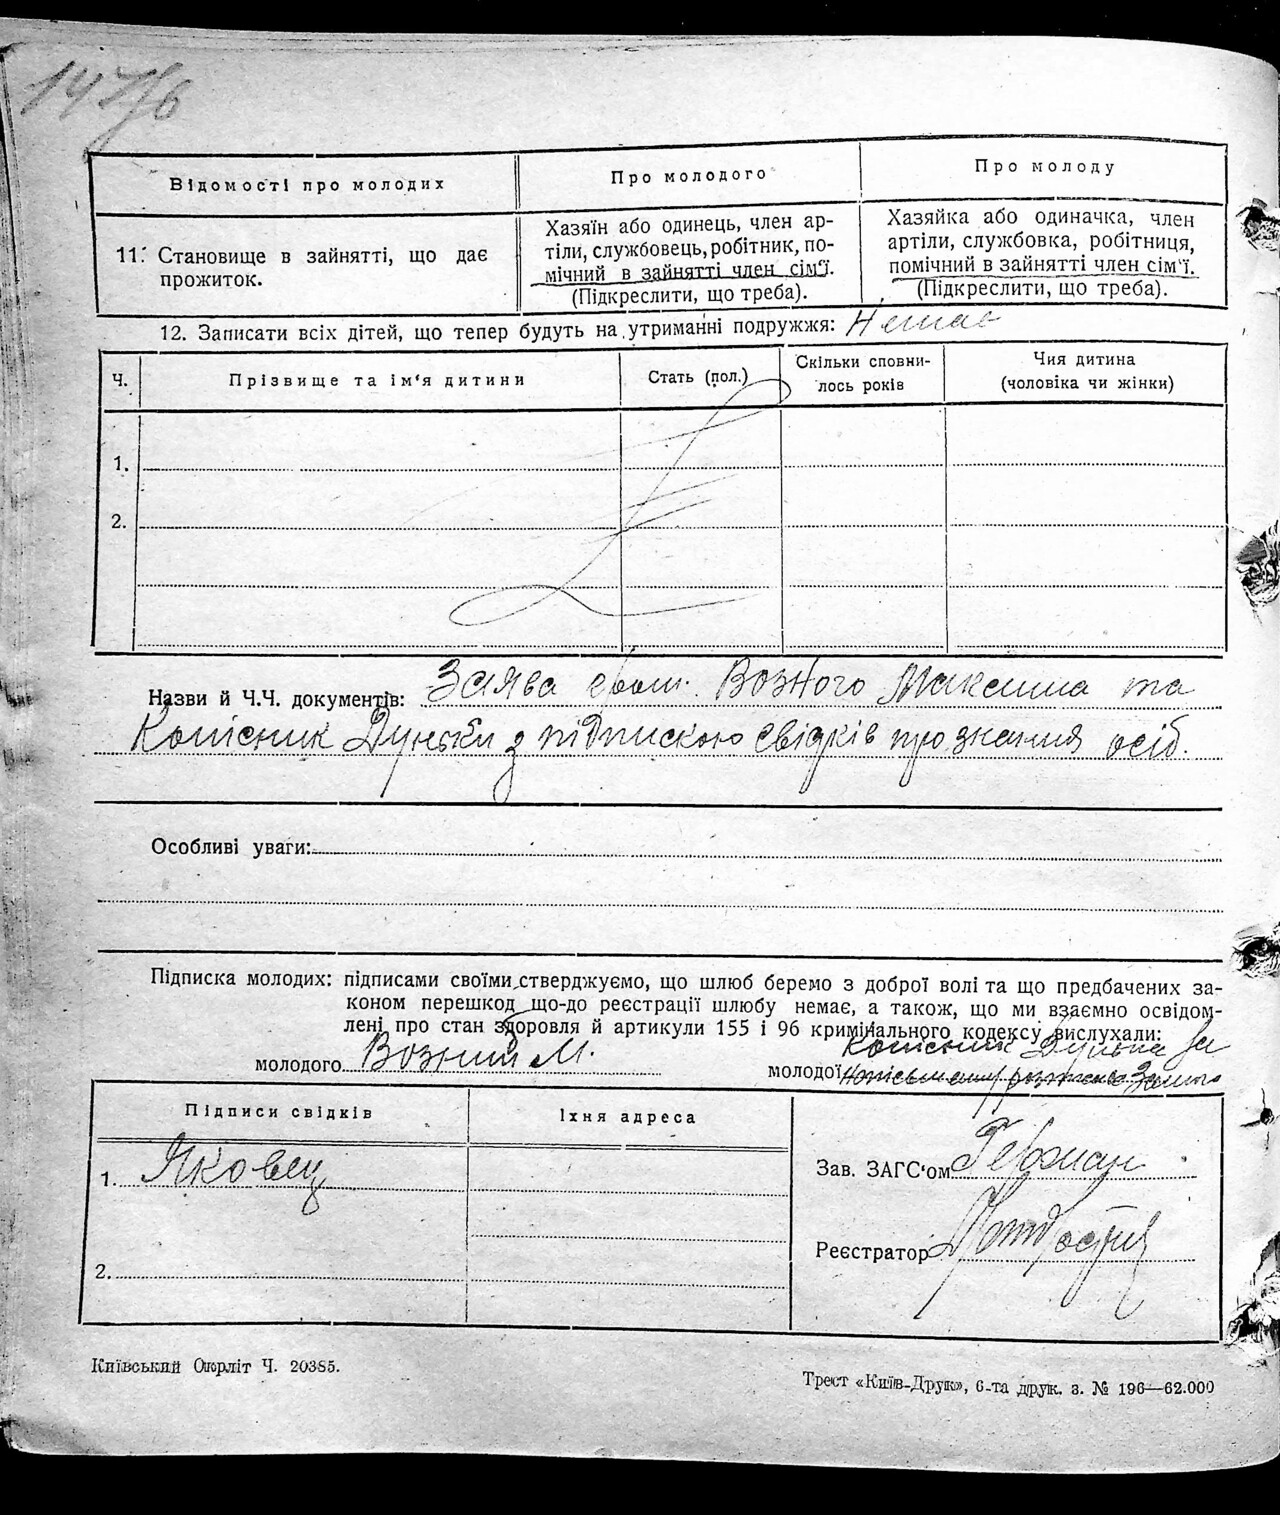 Відомості про молодих
Про молодого
Про молоду
11. Становище в зайнятті, що дає
прожиток.
Хазяїн або одинець, член ар-
тіли, службовець, робітник, по-
мічний в зайнятті член сім'ї.
(Підкреслити, що треба).
Хазяйка або одиначка, член
артіли, службовка, робітниця,
помічний в зайнятті член сім'ї.
(Підкреслити, що треба).
12. Записати всіх дітей, що тепер будуть на утриманні подружжя: Немає
Ч.
Прізвище та ім'я дитини
Стать (пол.)
Скільки сповни-
лось років
Чия дитина
(чоловіка чи жінки)
1.
2.
Назви й Ч.Ч. документів: Заява гром. Возного Максима та
Колісник Дуньки з підпискою свідків про знання осіб.
Особливі уваги:
Підписка молодих: підписами своїми стверджуємо, що шлюб беремо з доброї волі та що предбачених за-
коном перешкод що-до реєстрації шлюбу немає, а також, що ми взаємно освідом-
лені про стан здоровля й артикули 155 і 96 кримінального кодексу вислухали:
Колісник Дунька за
молодого Возний М.
молодої
Підписи свідків
Їхня адреса
1. Яковец
2.
Зав. ЗАГС'ом
Реєстратор
Київський Окрліт Ч. 20385.
Трест «Київ-Друк», 6-та друк. з. № 196—62.000